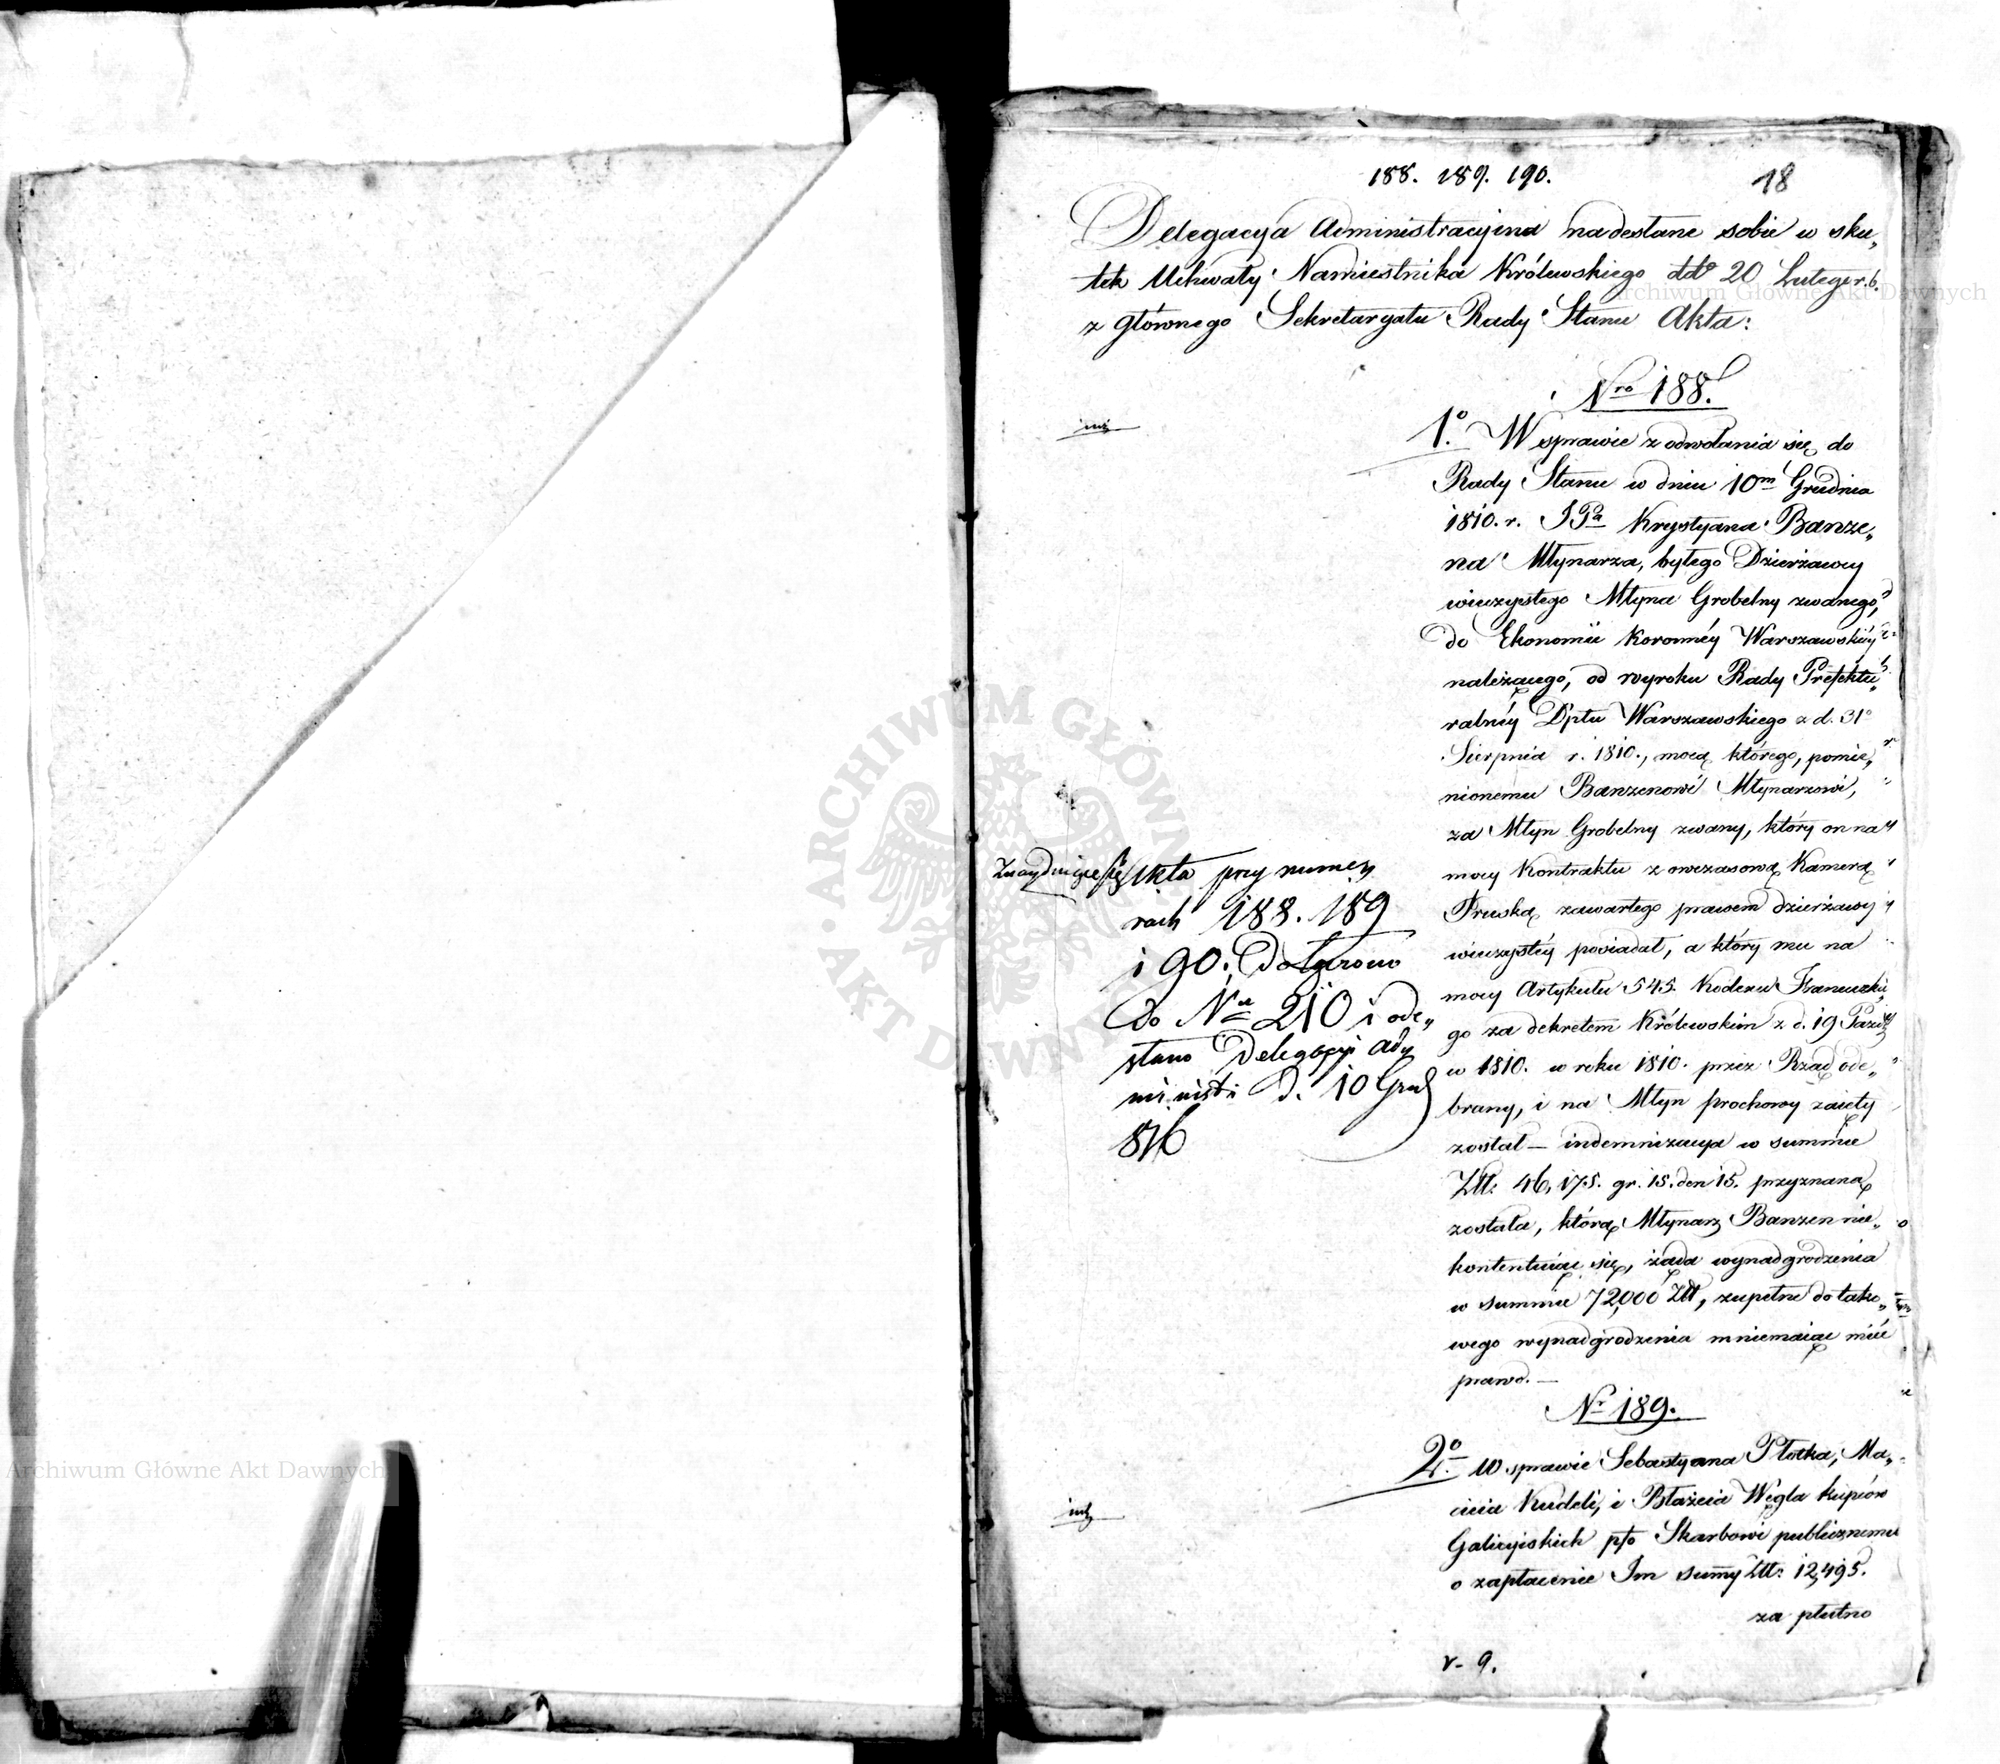 188. 189. 190.
18
Delegacya Administracyina nadesłane sobie w sku„
tek Uchwały Namiestnika Królewskiego ddo 20 Lutego r. b.
z głównego Sekretaryatu Rady Stanu Akta:
Nro 188.
1o. W sprawie z odwołania się do
Rady Stanu w dniu 10m Grudnia
1810. r. JPa Krystyana Banze„
na Młynarza, byłego Dzierżawcy
wieczystego Młyna Grobelny zwanego,
do Ekonomii Koronnéy Warszawskiéy
należącego, od wyroku Rady Prefektu„
ralnéy Dptu Warszawskiego z d. 31o
Sierpnia r. 1810., mocą którego, pomie„
nionemu Banzenowi Młynarzowi,
za Młyn Grobelny zwany, który on na
mocy Kontraktu z owczasową Kamerą
Pruską zawartego prawem dzierżawy
wieczystéy posiadał, a który mu na
mocy Artykułu 545. Kodexu Francuzkie„
go za dekretem Królewskim z d. 19 Paźdz
w 1810. w roku 1810. przez Rząd ode„
brany, i na Młyn prochowy zaięty
został — indemnizacya w summie
Złt: 46,175. gr. 15. den 15. przyznaną
została, którą Młynarz Banzen nie„
kontentuiąc się, żąda wynadgrodzenia
w summie 72,000 Złt, zupełne do tako„
wego wynadgrodzenia mniemaiąc mieć
prawo. —
Znayduiące się akta przy nume„
rach 188. 189
i 90. Dołączono
do Nru 210 i ode„
słano Delegacyi Ady
minist: d. 10 Grud
816
Nr 189.
2o. W sprawie Sebastyana Płotka, Ma„
cieia Kudeli, i Błażeia Węgla kupców
Galicyiskich pko Skarbowi publicznemu
o zapłacenie Im sumy Złt: 12,495.
za płutno
v- 9.
Archiwum Główne Akt Dawnych
Archiwum Główne Akt Dawnych
ARCHIWUM GŁÓWNE AKT DAWNYCH